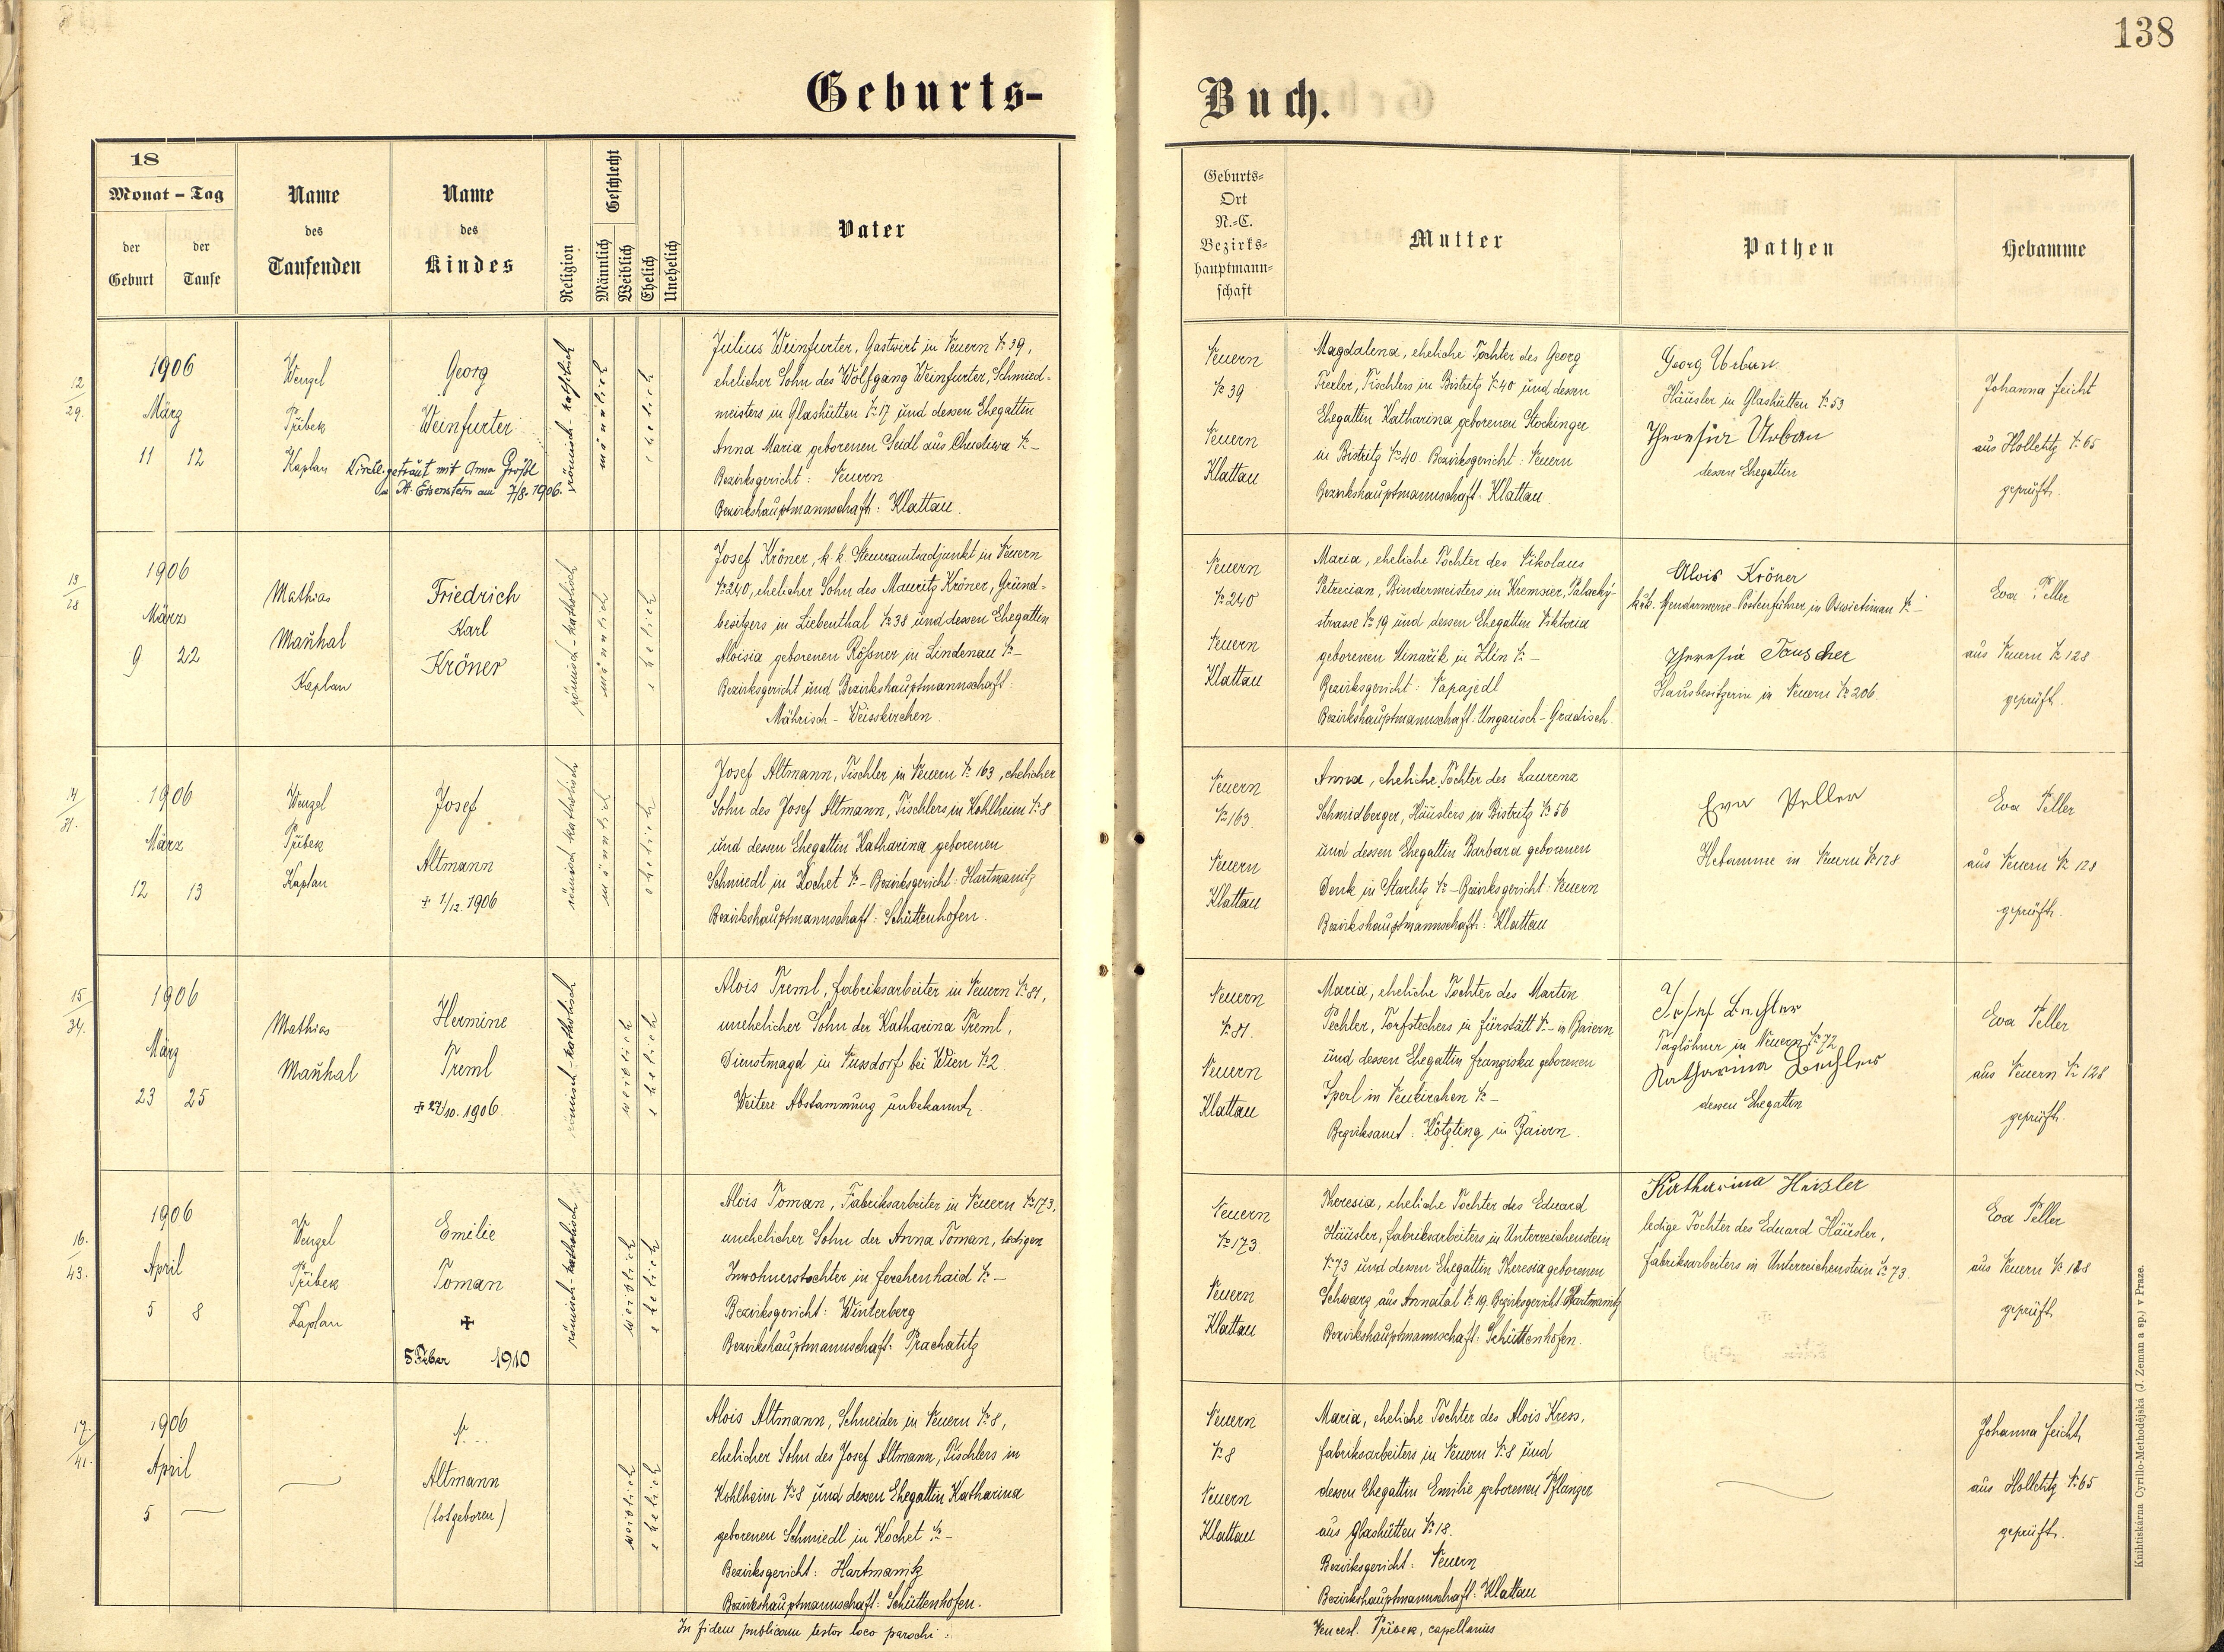 138
Geburts-
Buch.
18
Monat - Tag
der Geburt
der Taufe
Name des Taufenden
Name des Kindes
Religion
Geschlecht
Männlich
Weiblich
Ehelich
Unehelich
Vater
Geburts-
Ort
N.-C.
Bezirks-
hauptmann-
schaft
Mutter
Pathen
Hebamme
12/29.
1906
März
11 12
Wenzel
Přibek
Kaplan
Georg
Weinfurter
Kirchl. getraut mit Anna
Eisenstein am 7/8. 1906.
römisch-katholisch
männlich
ehelich
Julius Weinfurter, Gastwirt in Neuern № 39,
ehelicher Sohn des Wolfgang Weinfurter, Schmied-
meisters in Glashütten № 17 und dessen Ehegattin
Anna Maria geborenen Seidl aus Chudiwa № -
Bezirksgericht: Neuern
Bezirkshauptmannschaft: Klattau.
Neuern
№ 39
Neuern
Klattau
Magdalena, eheliche Tochter des Georg
Tischlers in Bistritz № 40 und dessen
Ehegattin Katharina geborenen Stockinger
in Bistritz № 40. Bezirksgericht: Neuern
Bezirkshauptmannschaft: Klattau.
Georg Urban
Häusler in Glashütten № 53
Theresia Urban
dessen Ehegattin
Johanna Feicht
aus Holletitz № 65
geprüft.
13/28
1906
März
9 22
Mathias
Maňhal
Kaplan
Friedrich
Karl
Kröner
römisch-katholisch
männlich
ehelich
Josef Kröner, k. k. Steueramtsadjunkt in Neuern
№ 240, ehelicher Sohn des Mauritz Kröner, Grund-
besitzers in Liebenthal № 38 und dessen Ehegattin
Aloisia geborenen Rößner in Lindenau № -
Bezirksgericht und Bezirkshauptmannschaft:
Mährisch-Weisskirchen.
Neuern
№ 240
Neuern
Klattau
Maria, eheliche Tochter des Nikolaus
Petrecian, Bindermeisters in Kremsier, Palacký-
strasse № 19 und dessen Ehegattin Viktoria
geborenen Minařik in Zlin № -
Bezirksgericht: Napajedl
Bezirkshauptmannschaft: Ungarisch-Gradisch.
Alois Kröner
k.k. Gendarmerie-Postenführer in № -
Theresia Tauscher
Hausbesitzerin in Neuern № 206.
Eva Peller
aus Neuern № 128
geprüft.
14/31.
1906
März
12 13
Wenzel
Přibek
Kaplan
Josef
Altmann
+ 1/12. 1906
römisch-katholisch
männlich
ehelich
Josef Altmann, Tischler in Neuern № 163, ehelicher
Sohn des Josef Altmann, Tischlers in Kohlheim № 8
und dessen Ehegattin Katharina geborenen
Schmiedl in Kochet № - Bezirksgericht: Hartmanitz
Bezirkshauptmannschaft: Schüttenhofen.
Neuern
№ 163.
Neuern
Klattau
Anna, eheliche Tochter des Laurenz
Schmidberger, Häuslers in Bistritz № 56
und dessen Ehegattin Barbara geborenen
Denk in Starlitz № - Bezirksgericht: Neuern
Bezirkshauptmannschaft: Klattau
Eva Peller
Hebamme in Neuern № 128
Eva Peller
aus Neuern № 128
geprüft.
15/34.
1906
März
23 25
Mathias
Maňhal
Hermine
Treml
+ 27/10. 1906.
römisch-katholisch
weiblich
ehelich
Alois Treml, Fabriksarbeiter in Neuern № 81,
unehelicher Sohn der Katharina Treml,
Dienstmagd in Nussdorf bei Wien № 2.
Weitere Abstammung unbekannt.
Neuern
№ 81.
Neuern
Klattau
Maria, eheliche Tochter des Martin
Pechler, Torfstechers in Fürstätt № - in Baiern
und dessen Ehegattin Franziska geborenen
Sperl in Neukirchen № -
Bezirksamt: Kötzting in Baiern.
Josef
Taglöhner in Neuern № 72
Katharina
dessen Ehegattin
Eva Peller
aus Neuern № 128
geprüft.
16./43.
1906
April
5 8
Wenzel
Přibek
Kaplan
Emilie
Toman
✠
5 Feber 1910
römisch-katholisch
weiblich
ehelich
Alois Toman, Fabriksarbeiter in Neuern № 173,
unehelicher Sohn der Anna Toman, ledigen
Inwohnerstochter in Ferchenhaid № -
Bezirksgericht: Winterberg
Bezirkshauptmannschaft: Prachatitz
Neuern
№ 173.
Neuern
Klattau
Theresia, eheliche Tochter des Eduard
Häusler, Fabriksarbeiters in Unterreichenstein
№ 73 und dessen Ehegattin Theresia geborenen
Schwarz aus Annatal № 19. Bezirksgericht: Hartmanitz
Bezirkshauptmannschaft: Schüttenhofen.
Katharina Heisler
ledige Tochter des Eduard Häusler,
Fabriksarbeiters in Unterreichenstein № 73.
Eva Peller
aus Neuern № 128
geprüft.
17./41.
1906
April
5 —
—
N. ..
Altmann
(totgeboren)
weiblich
ehelich
Alois Altmann, Schneider in Neuern № 8,
ehelicher Sohn des Josef Altmann, Tischlers in
Kohlheim № 8 und dessen Ehegattin Katharina
geborenen Schmiedl in Kochet № -
Bezirksgericht: Hartmanitz
Bezirkshauptmannschaft: Schüttenhofen.
Neuern
№ 8
Neuern
Klattau
Maria, eheliche Tochter des Alois Kress,
Fabriksarbeiters in Neuern № 8 und
dessen Ehegattin Emilie geborenen Pflanzer
aus Glashütten № 18.
Bezirksgericht: Neuern
Bezirkshauptmannschaft: Klattau
—
Johanna Feicht,
aus Holletitz № 65
geprüft.
In fidem publicam testor loco parochi:
Vencesl. Přibek, capellanus
Knihtiskárna Cyrillo-Methodějská (J. Zeman a sp.) v Praze.